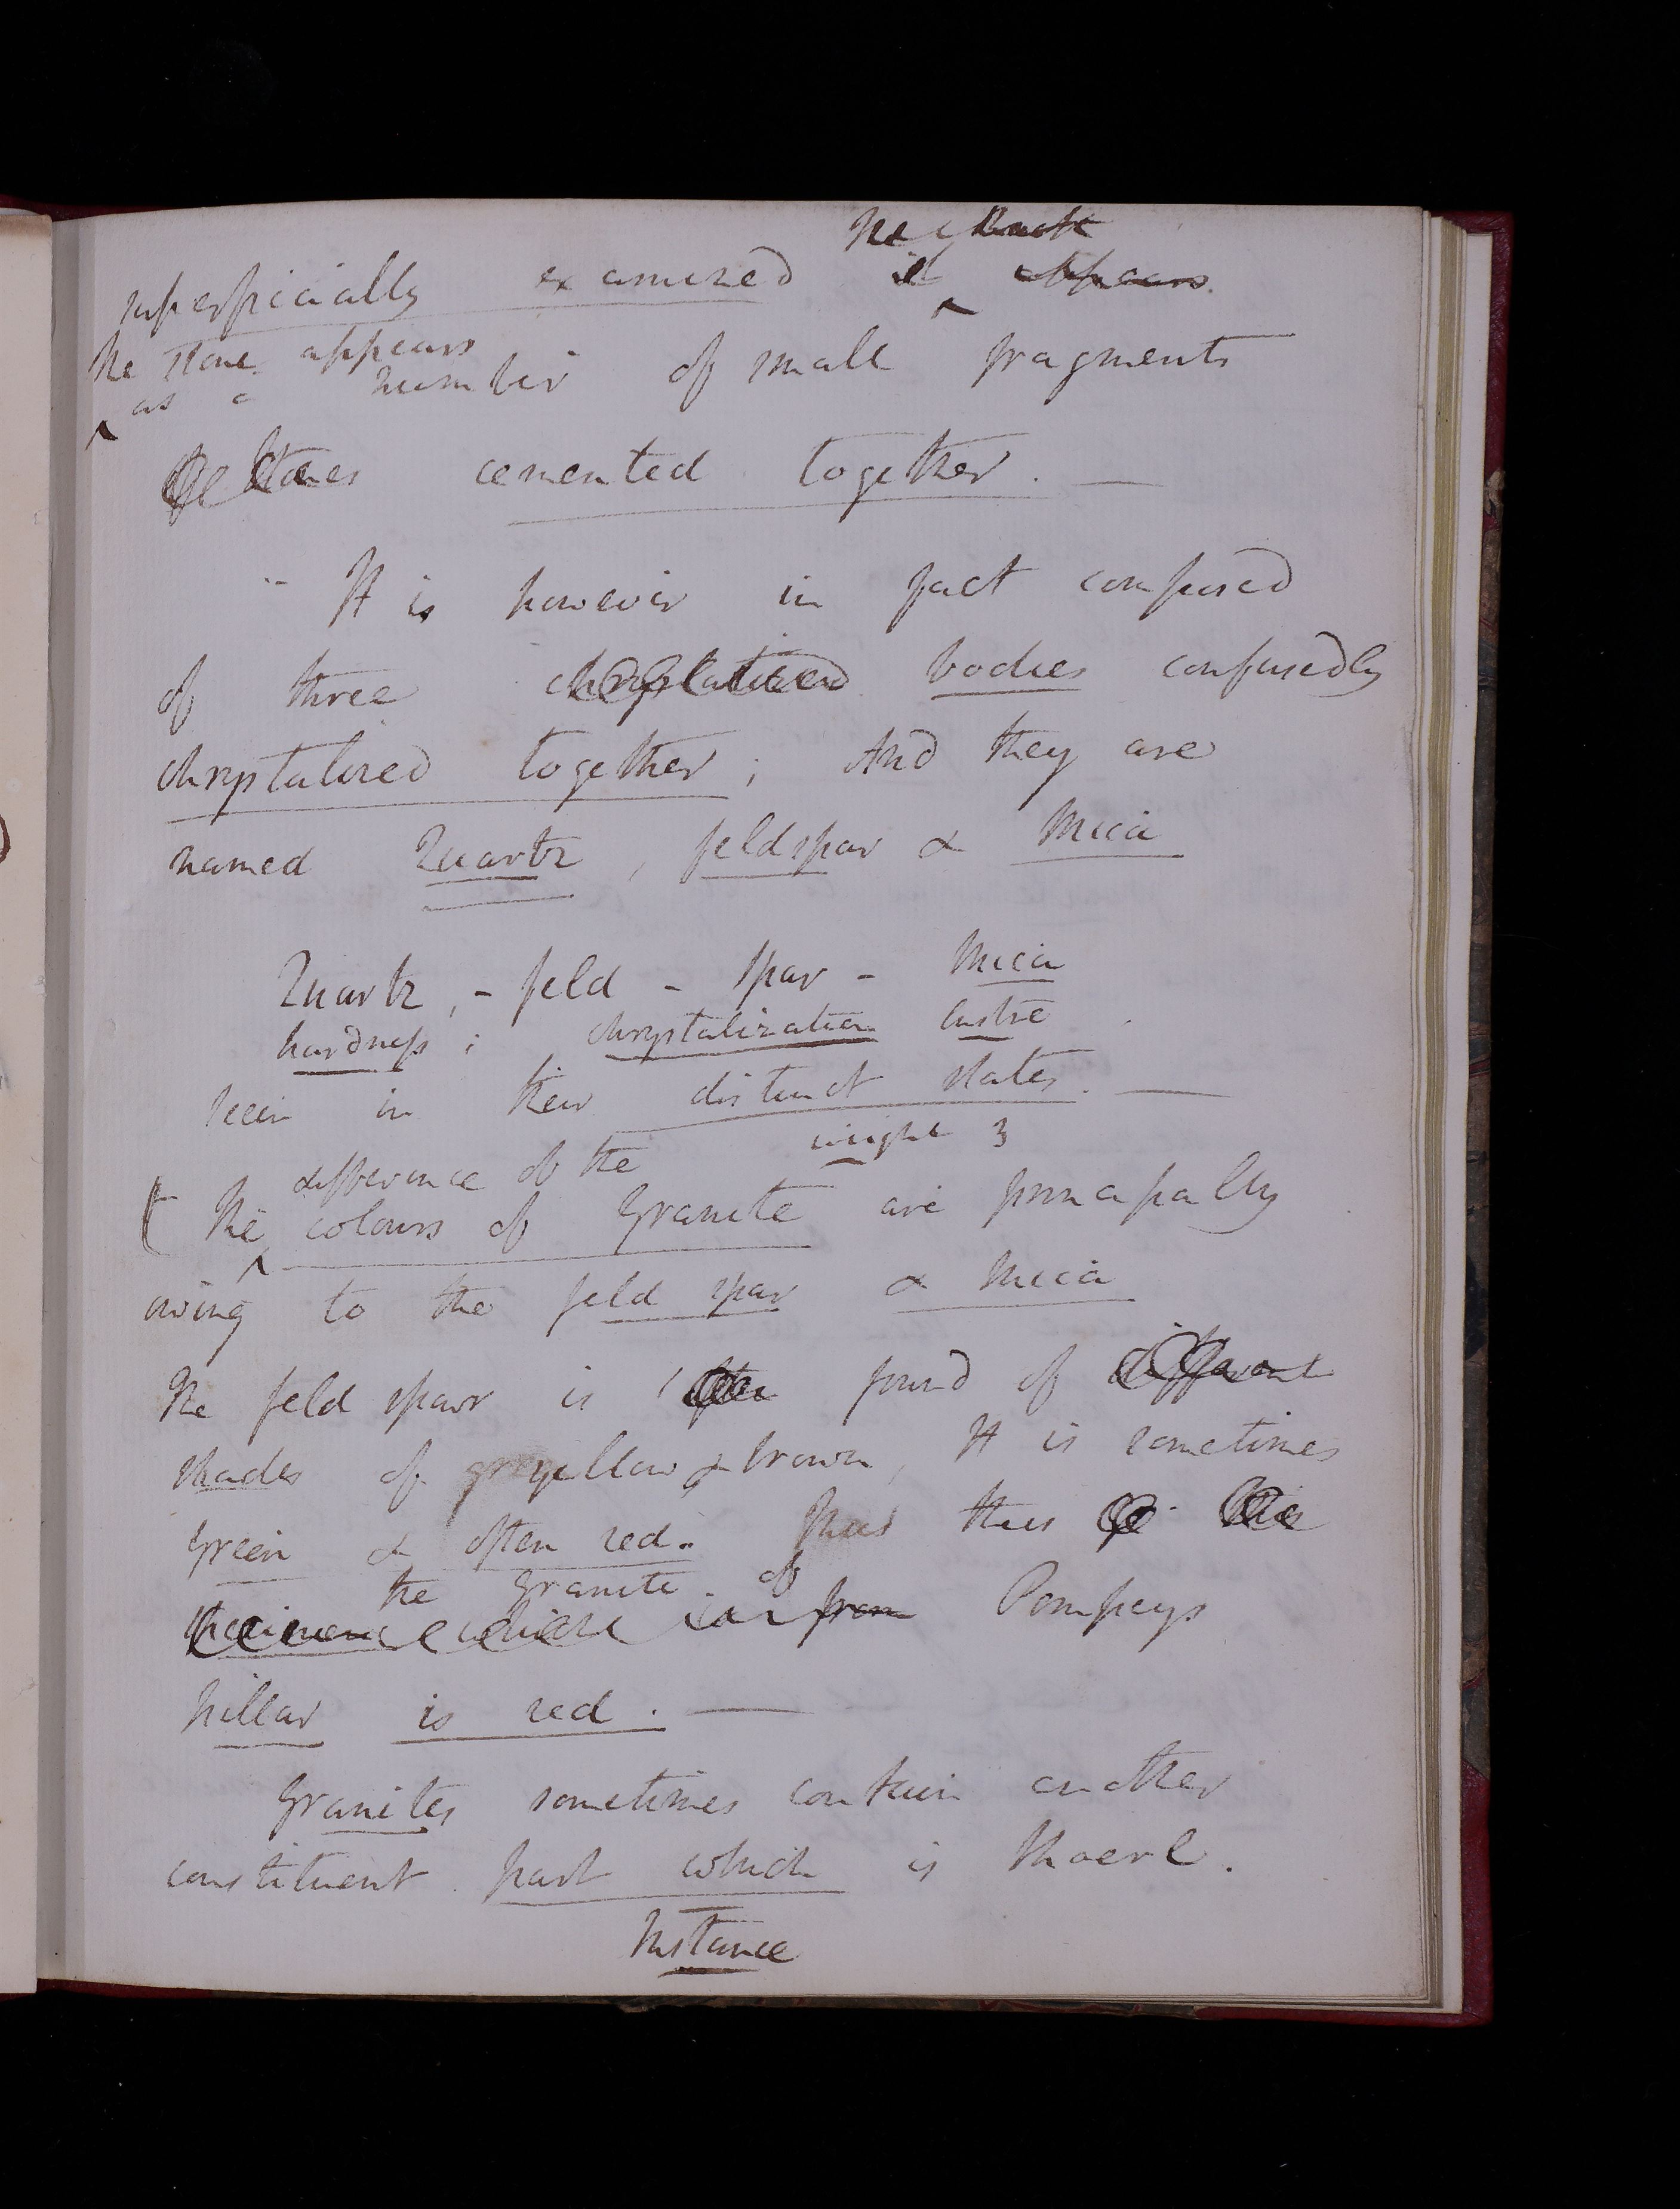 the Rock
superficially examined it appears
the stone appears
as a number of small fragments
of stones cemented together. —
It is however in fact composed
of three chrystalized bodies confusedly
chrystalized together; And they are
named Quartz, feldspar & Mica
Quartz, - feld - spar - Mica
hardness; chrystalization lustre
seen in their distinct states. —
difference of the weight 3
The colours of Granite are principally
owing to the feld spar & Mica
The feld spar is often found of different
shades of grey yellow & brown, It is sometimes
green & often red. Thus thus
the Granite of
specimen which is from Pompeys
Pillar is red. —
Granites sometimes contain another
constituent part which is Shoerl.
Instance